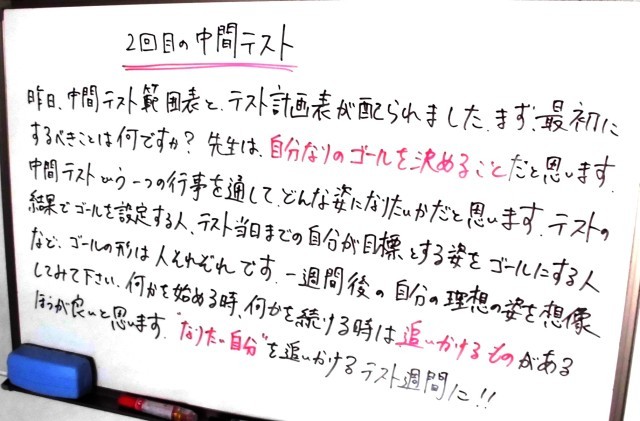 2回目の中間テスト
昨日、中間テスト範囲表と、テスト計画表が配られました。まず、最初に
するべきことは何ですか？ 先生は、自分なりのゴールを決めることだと思います。
中間テストという一つの行事を通して、どんな姿になりたいかだと思います。テストの
結果でゴールを設定する人、テスト当日までの自分が目標とする姿をゴールにする人
など、ゴールの形は人それぞれです。一週間後の自分の理想の姿を想像
してみて下さい。何かを始める時、何かを続ける時は追いかけるものがある
ほうが良いと思います。"なりたい自分"を追いかけるテスト週間に!!